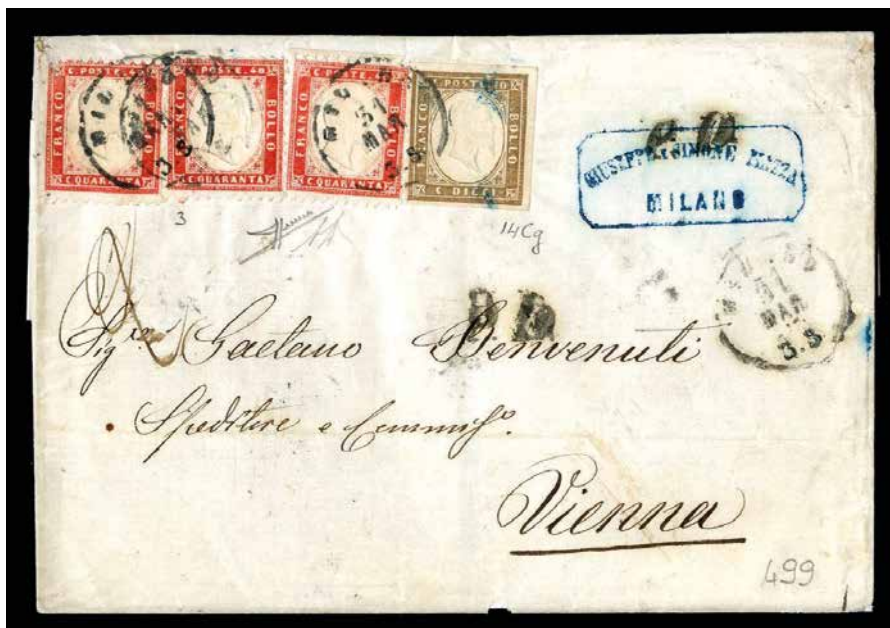 C. POSTE. 40
FRANCO
BOLLO
C. QUARANTA
C. POSTE. 40
FRANCO
BOLLO
C. QUARANTA
C. POSTE. 40
FRANCO
BOLLO
C. QUARANTA
FRANCO
BOLLO
C. DIECI
31
MAR
3.S
P.D.
GIUSEPPE e SIMONE
MILANO
3
14Cg
31
MAR
3.S
P.D.
Sig.re Gaetano Benvenuti
Speditore e
Vienna
499